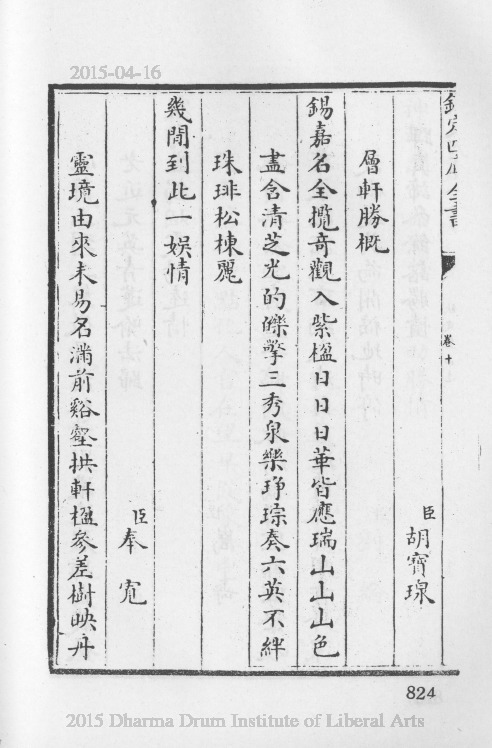 2015-04-16
欽定四庫全書
卷十
臣胡寶瑔
層軒勝概
錫嘉名全攬奇觀入紫楹日日日華皆應瑞山山山色
盡含清芝光的皪擎三秀泉樂琤琮奏六英不絆
珠琲松棟麗
幾閒到此一娛情
臣奉寬
靈境由來未易名滿前谿壑拱軒楹參差樹映丹
824
2015 Dharma Drum Institute of Liberal Arts